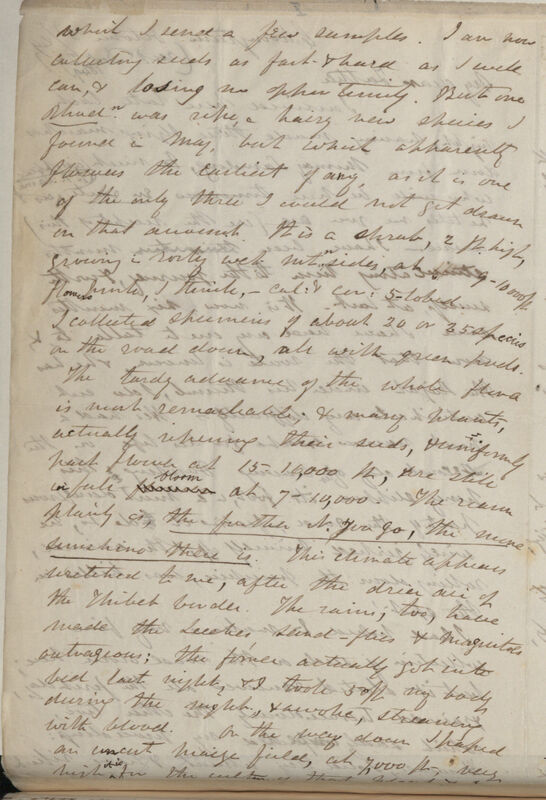 which I send a few samples. I am now
collecting seeds as fast & hard as I well
can, & losing no opportunity. But one
Rhodn. was ripe, a hairy new species I
found in May, but which apparently
flowers the earliest of any, as it is one
of the only three I could not get drawn
on that account. It is a shrub, 2 ft. high,
growing in rocky wet mtn sides, at 9-10000 ft
flowers pink, I think, — cal: & cor: 5-lobed
I collected specimens of about 20 or 25 species
on the road down, all with green pods.
The tardy advance of the whole flora
is most remarkable. & many plants,
actually ripening their seeds, & uniformly
past flower at 15-16,000 ft, are still
in full bloom at 7-10,000. The reason
plainly is, the further N. you go, the more
sunshine there is. This climate appears
wretched to me, after the drier air of
the Thibet border. The rains, too, have
made the Leeches sand-flies & Musquitos
outrageous; the former actually got into
bed last night, & I took 5 off my body
during the night, & awoke, streaming
with blood. On the way down I passed
an uncut maize field, at 7,000 ft, very
high it is for the